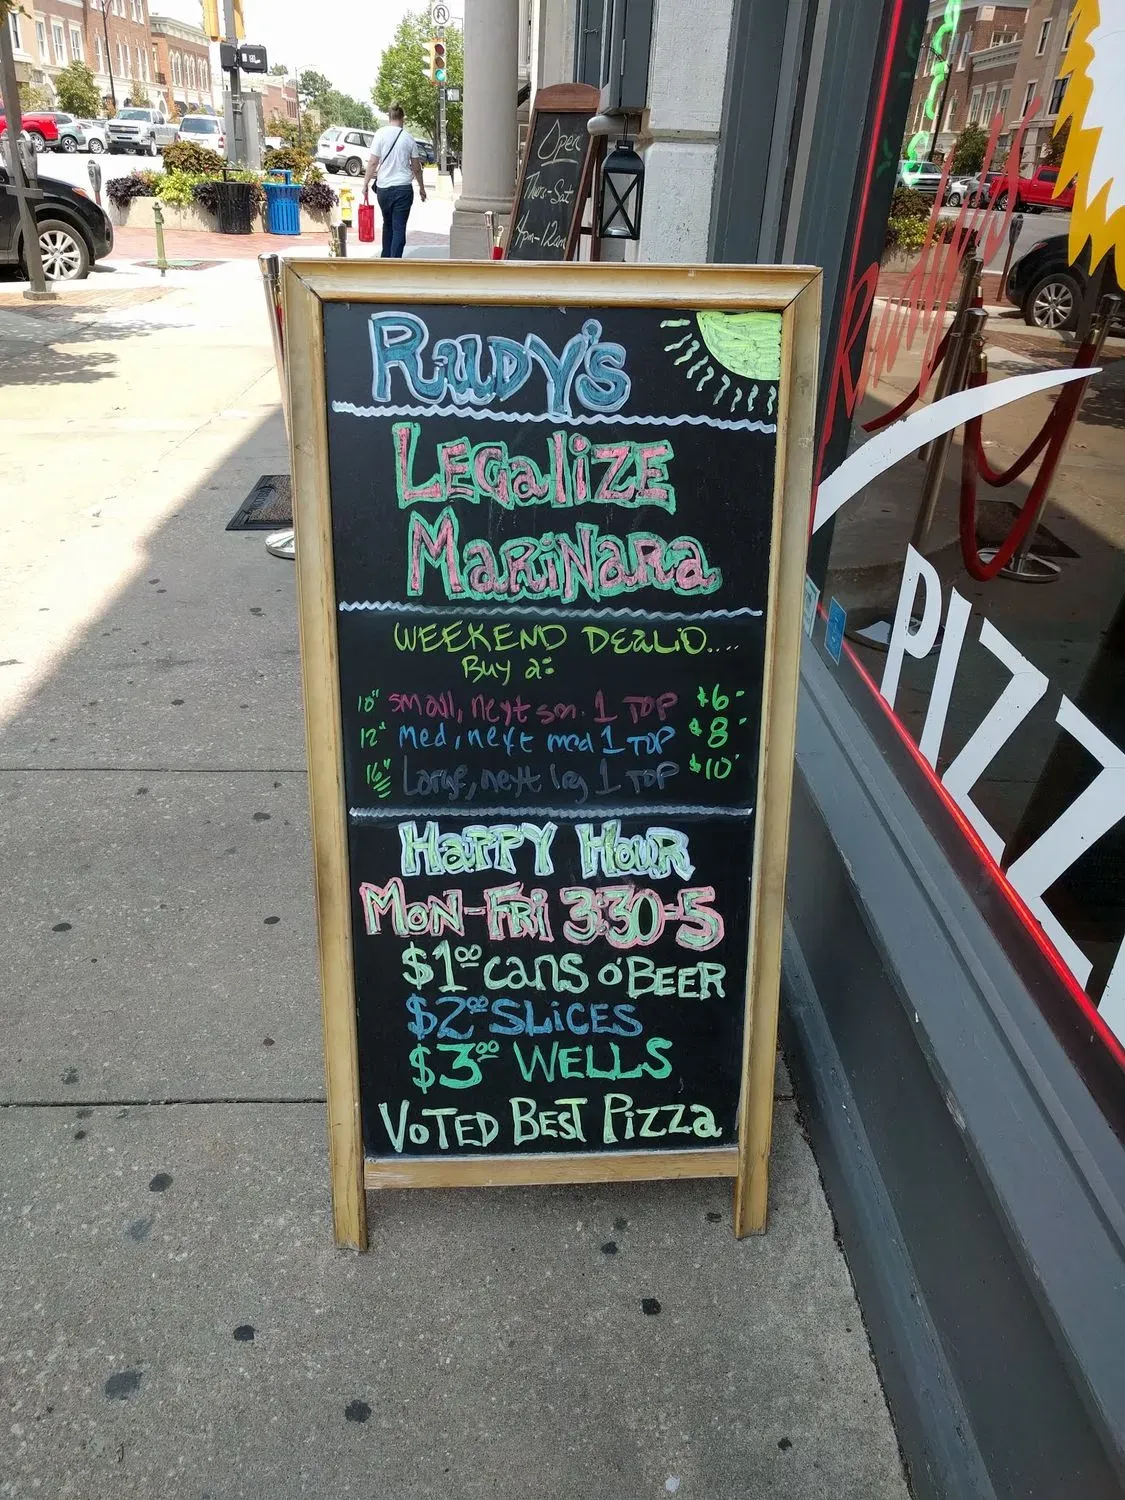 Open
Thurs-Sat
4pm-12am
RUDY'S
LEGALIZE
MARINARA
WEEKEND DEALIO....
Buy a:
10" small, next sm. 1 TOP $6
12" med, next med 1 TOP $8
16" Large, next lg 1 TOP $10
HAPPY HOUR
MON-FRI 3:30-5
$1.00 CANS O'BEER
$2.00 SLICES
$3.00 WELLS
VOTED BEST PIZZA
Rudy's
PIZZ